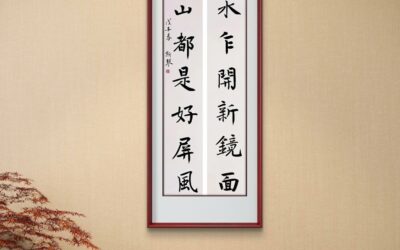 水乍開新鏡面
山都是好屏風